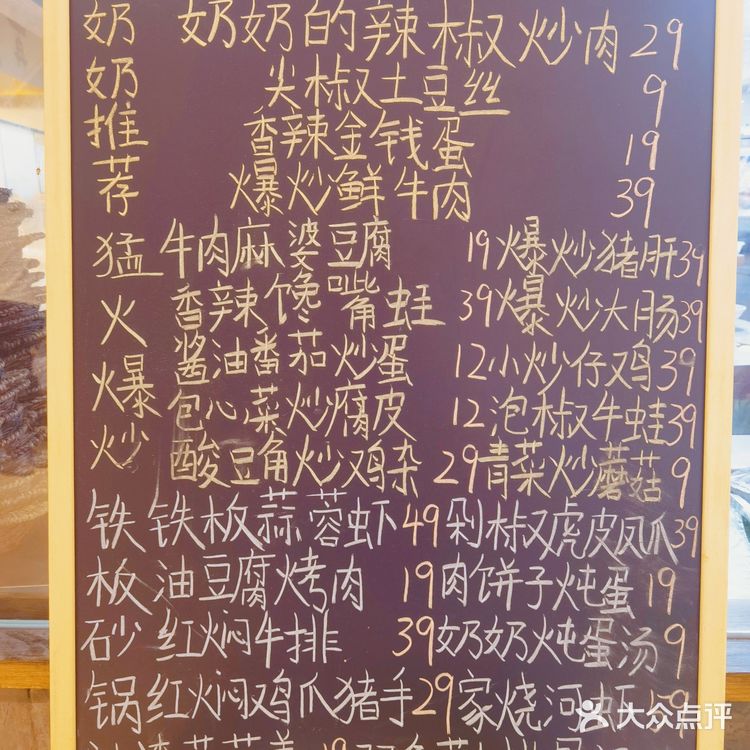 奶 奶奶的辣椒炒肉 29
奶 尖椒土豆丝 9
推 香辣金钱蛋 19
荐 爆炒鲜牛肉 39
猛 牛肉麻婆豆腐 19 爆炒猪肝 39
火 香辣馋嘴蛙 39 爆炒大肠 39
爆 酱油番茄炒蛋 12 小炒仔鸡 39
炒 包心菜炒腐皮 12 泡椒牛蛙 39
酸豆角炒鸡杂 29 青菜炒蘑菇 9
铁 铁板蒜蓉虾 49 剁椒虎皮凤爪 39
板 油豆腐烤肉 19 肉饼子炖蛋 19
砂 红焖牛排 39 奶奶炖蛋汤 9
锅 红焖鸡爪猪手 29 家烧河虾 59
大众点评